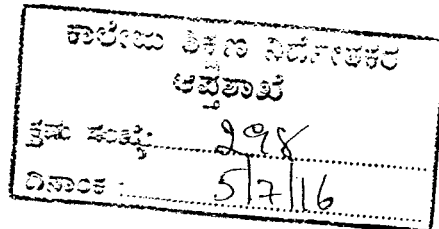 ಕಾಲೇಜು ಶಿಕ್ಷಣ ನಿರ್ದೇಶಕರ
ಆಪ್ತಶಾಖೆ
ಕ್ರಮ ಸಂಖ್ಯೆ: ೨೯೪
ದಿನಾಂಕ : 5/7/16